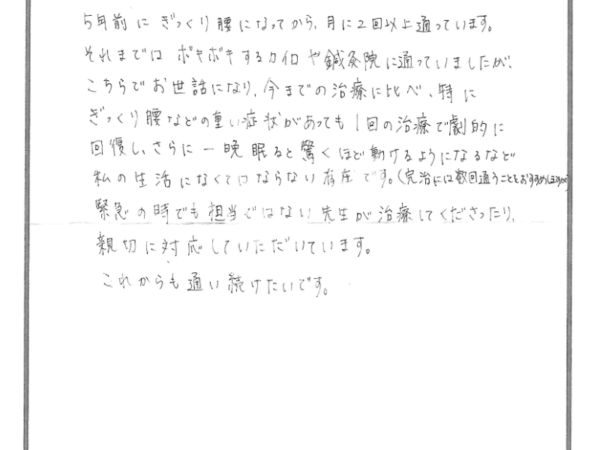 5年前にぎっくり腰になってから、月に2回以上通っています。
それまでは ボキボキするカイロや鍼灸院に通っていましたが、
こちらでお世話になり、今までの治療に比べ、特に
ぎっくり腰などの重い症状があっても1回の治療で劇的に
回復し、さらに一晩眠ると驚くほど動けるようになるなど
私の生活になくてはならない存在です。(完治には数回通うことをおすすめしますが)
緊急の時でも担当ではない先生が治療してくださったり、
親切に対応していただいています。
これからも通い続けたいです。